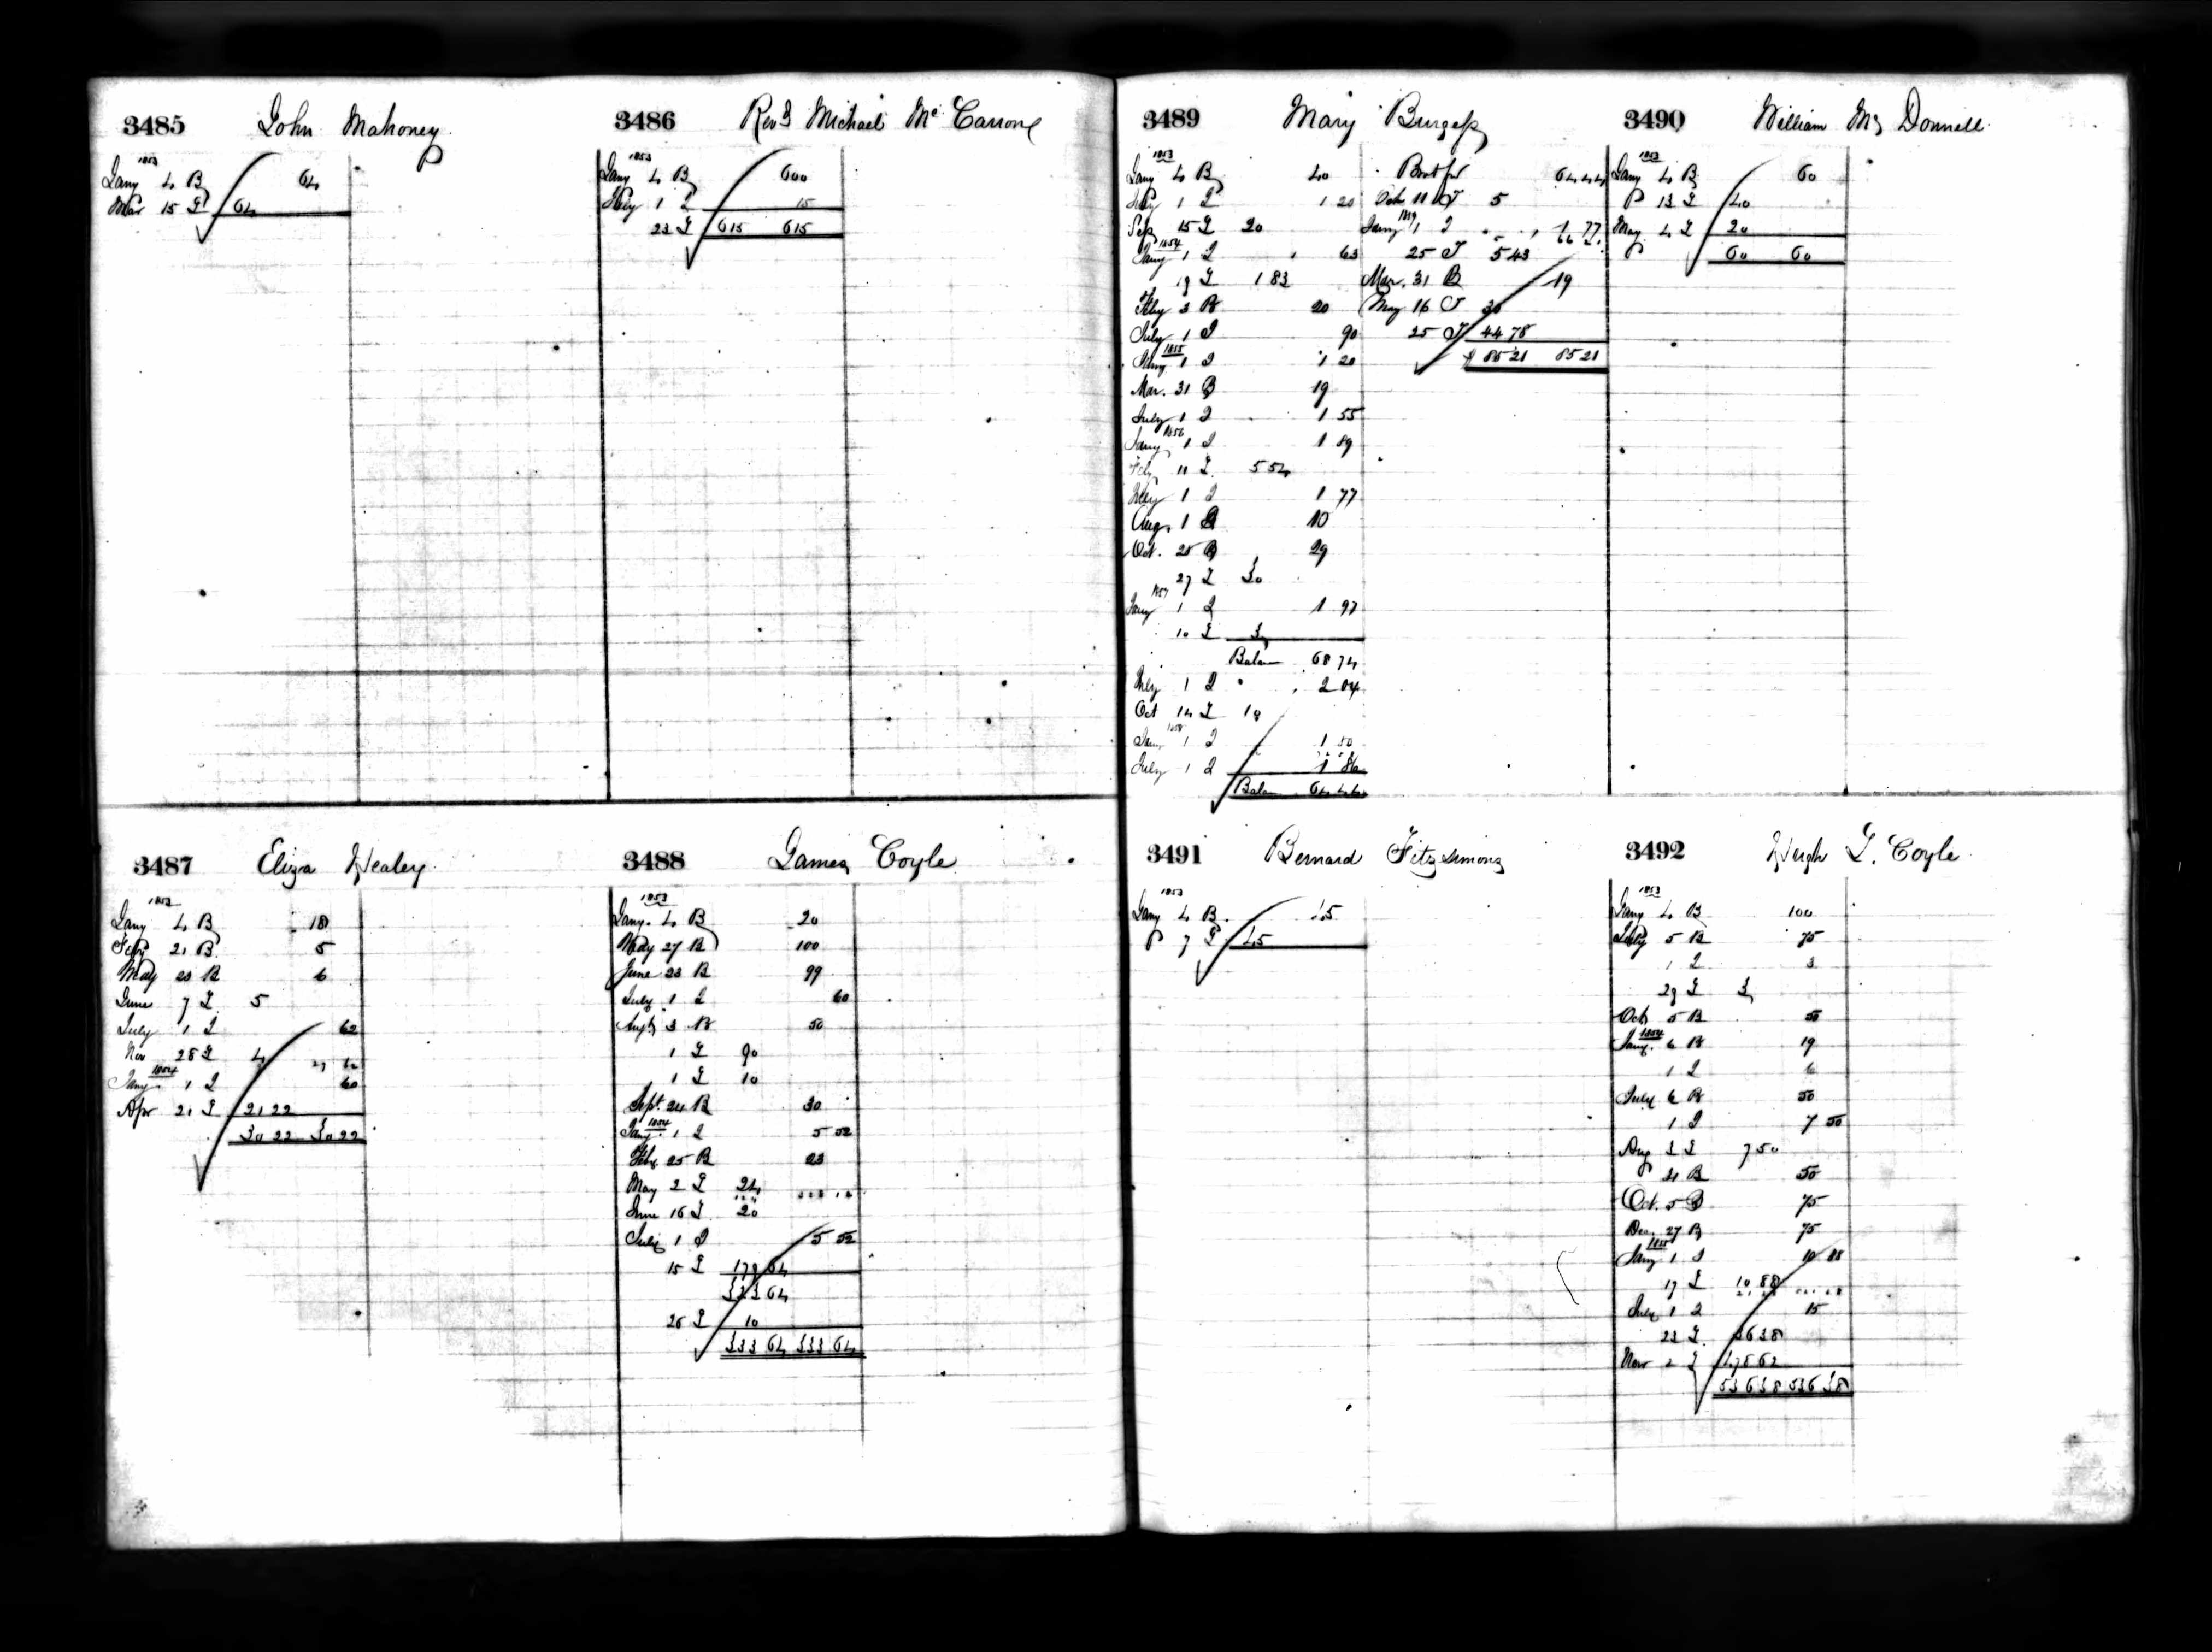 3485 John Mahoney
1853
Jany 4 B 64
Mar 15 T 64
3486 Revd Michael Mc Carrone
1853
Jany 4 B 600
July 1 I 15
23 T 615 615
3487 Eliza Healey
1853
Jany 4 B 18
Feby 21 B 5
May 23 B 6
June 7 T 5
July 1 I 62
Nov 28 T 4
1854
Jany 1 I 60
Apr 21 T 21 22
30 22 30 22
3488 James Coyle
1853
Jany. 4 B 20
May 27 B 100
June 23 B 99
July 1 I 60
Augt 3 B 50
1 T 90
1 T 10
Sept. 24 B 30
1854
Jany. 1 I 5 52
Feby. 25 B 23
May 2 T 24
June 16 T 20
July 1 I 5 52
15 T 179 64
323 64
26 T 10
333 64 333 64
3489 Mary Burgess
1853
Jany 4 B 40
July 1 I 1 20
Sep 15 T 20
1854
Jany 1 I 63
19 T 1 83
Feby 3 B 20
July 1 I 90
1855
Jany 1 I 1 20
Mar. 31 B 19
July 1 I 1 55
1856
Jany 1 I 1 89
Feby 11 T 5 54
July 1 I 1 77
Aug. 1 B 10
Oct. 25 B 29
27 T 30
1857
Jany 1 I 1 97
10 T 3
Balan 68 74
July 1 I 2 04
Oct 14 T 10
1858
Jany 1 I 1 80
July 1 I 1 86
Balan 64 44
Brot for 64 44
Oct 11 T 5
1859
Jany 1 I 1 77
25 T 5 43
Mar. 31 B 19
May 16 T 30
25 T 44 78
$ 85 21 85 21
3490 William Mc Donnell
1853
Jany 4 B 60
13 T 40
May 4 T 20
60 60
3491 Bernard Fitzsimons
1853
Jany 4 B. 45
7 T 45
3492 Hugh T. Coyle
1853
Jany 4 B 100
July 5 B 75
1 I 3
29 T 3
Oct 5 B 50
1854
Jany. 6 B 19
1 I 6
July 6 B 50
1 I 7 50
Aug 3 T 7 50
21 B 50
Oct. 5 B 75
Dec. 27 B 75
1855
Jany 1 I 10 88
17 T 10 88
July 1 I 15
23 T 36 38
Nov 2 T 478 62
536 38 536 38